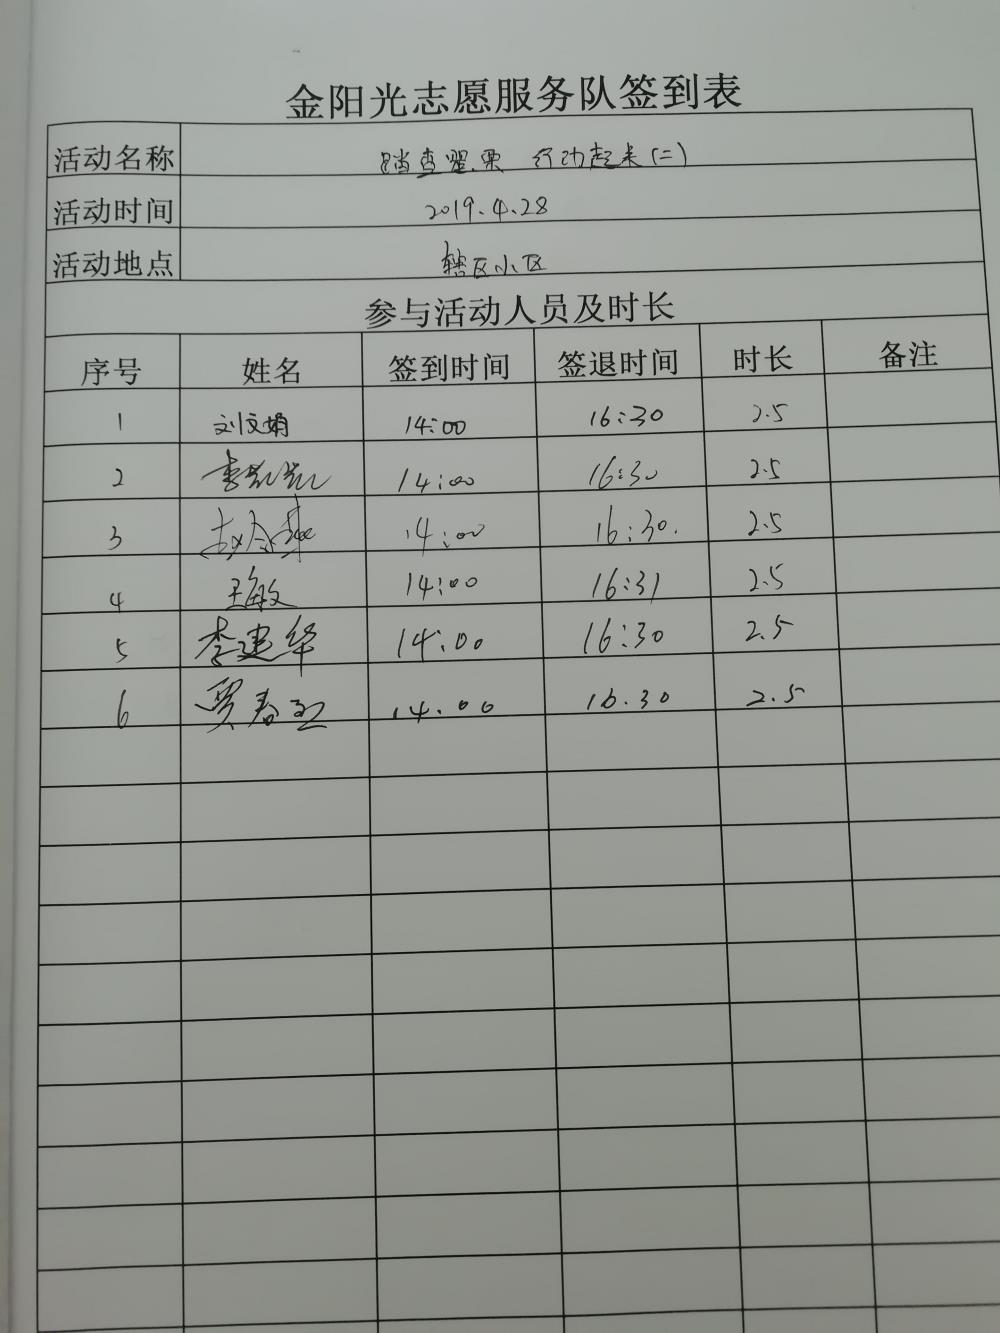 金阳光志愿服务队签到表
活动名称 踏查罂粟 行动起来(二)
活动时间 2019.4.28
活动地点 辖区小区
参与活动人员及时长
序号 姓名 签到时间 签退时间 时长 备注
1 刘文娟 14:00 16:30 2.5
2 李凯凯 14:00 16:30 2.5
3 14:00 16:30. 2.5
4 王敏 14:00 16:31 2.5
5 李建华 14:00 16:30 2.5
6 贾春 14.00 16.30 2.5